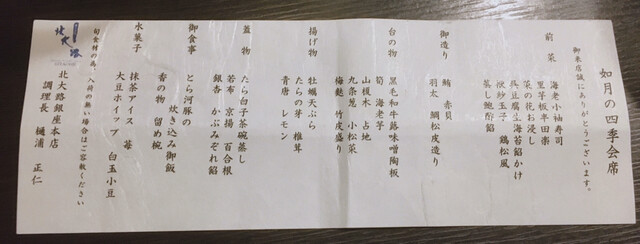 如月の四季会席
御来店誠にありがとうございます。
前菜
海老小袖寿司
里芋板半田楽
菜の花お浸し
呉豆腐生海苔餡かけ
伏紗玉子 鶏松風
蒸し鮑酢餡
御造り
鮪 赤貝
羽太 鯛松皮造り
台の物
黒毛和牛蕗味噌陶板
筍 海老芋
山榎木 占地
九条葱 小松菜
梅麩 竹皮盛り
揚げ物
牡蠣天ぷら
たらの芽 椎茸
青唐 レモン
蓋物
たら白子茶碗蒸し
若布 京揚 百合根
銀杏 かぶみぞれ餡
御食事
とら河豚の
炊き込み御飯
香の物 留め椀
水菓子
抹茶アイス 苺
大豆ホイップ 白玉小豆
旬食材の為、入荷の無い場合はご容赦ください
北大路銀座本店
調理長 樋浦 正仁
北大路